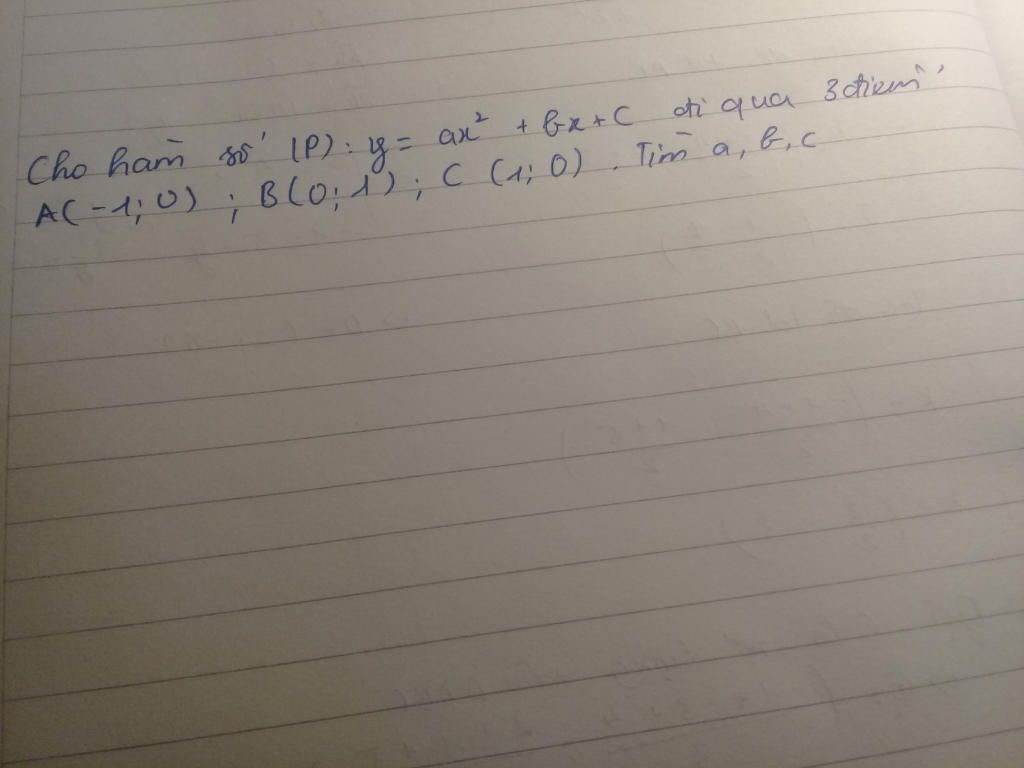 Cho hàm số (P): y = ax² + bx + C đi qua 3 điểm
A(-1; 0) ; B(0; 1) ; C (1; 0) . Tìm a, b, c